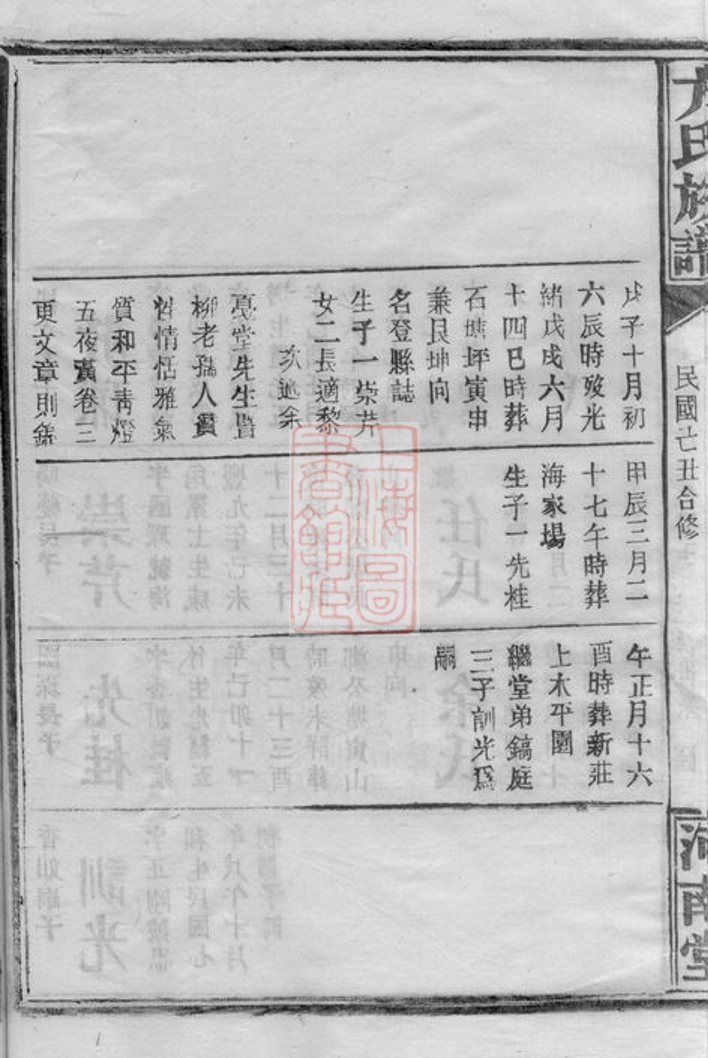 方氏族譜
民國丑合修
河南堂
戊子十月初
六辰時歿光
緒戊戌六月
十四巳時葬
石塘坪寅申
兼艮坤向
名登縣誌
生子一崇芹
女二長適黎
次適余
先生
柳老孺人
性情恬雅氣
質和平靑燈
五夜黃卷三
更文章則錦
甲辰三月二
十七午時葬
海家場
生子一先桂
午正月十六
酉時葬新莊
上木平園
繼堂弟鎬庭
三子訓光爲
嗣